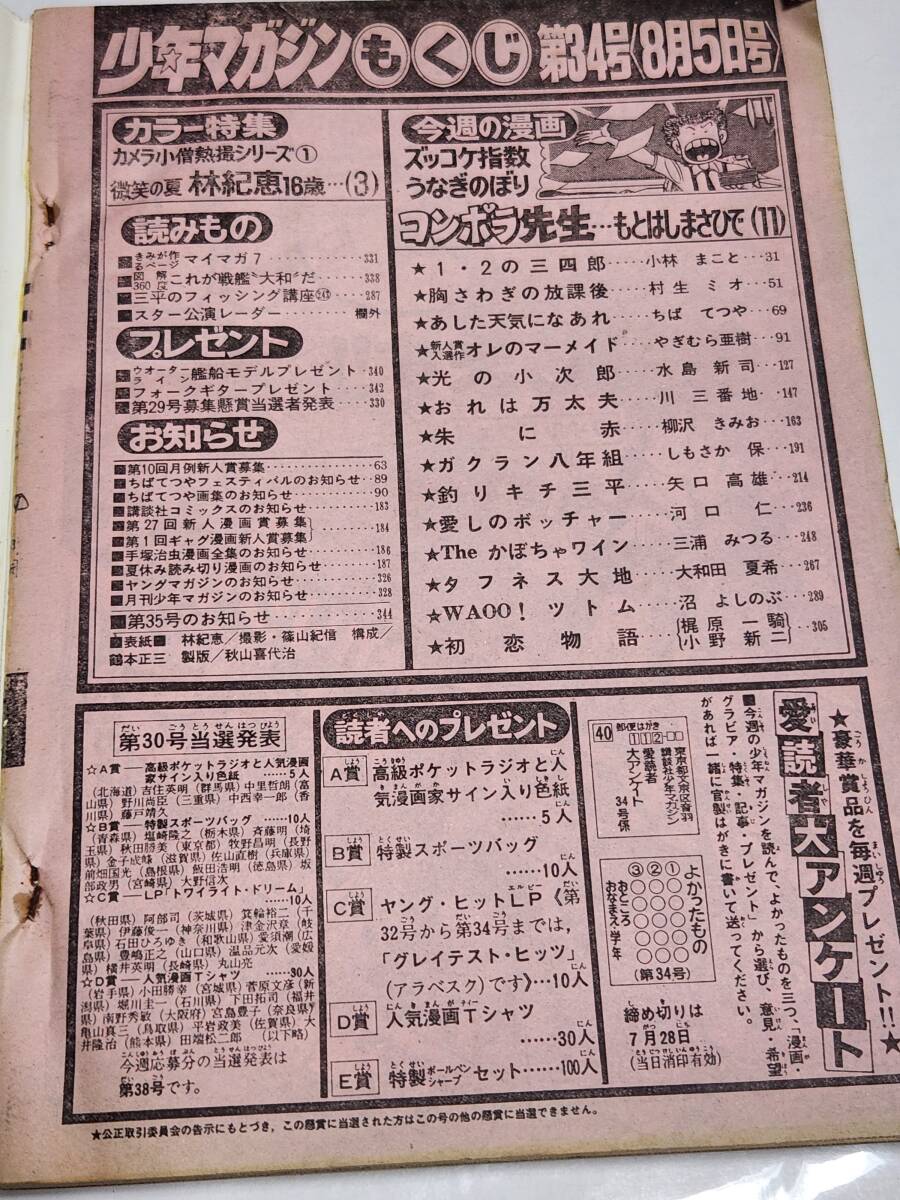 少年マガジンもくじ 第34号〈8月5日号〉
カラー特集
カメラ小僧熱撮シリーズ①
微笑の夏 林紀恵16歳…(3)
読みもの
■きみが作るページ マイマガ7……331
■図解360度 これが戦艦"大和"だ……338
■三平のフィッシング講座……287
■スター公演レーダー……欄外
プレゼント
■ウォーターライン艦船モデルプレゼント……340
■フォークギタープレゼント……342
■第29号募集懸賞当選者発表……330
お知らせ
■第10回月例新人賞募集……63
■ちばてつやフェスティバルのお知らせ……89
■ちばてつや画集のお知らせ……90
■講談社コミックスのお知らせ……183
■第27回新人漫画賞募集
■第1回ギャグ漫画新人賞募集……184
■手塚治虫漫画全集のお知らせ……186
■夏休み読み切り漫画のお知らせ……187
■ヤングマガジンのお知らせ……326
■月刊少年マガジンのお知らせ……328
■第35号のお知らせ……344
■表紙■ 林紀恵/撮影・篠山紀信 構成/
鶴本正三 製版/秋山喜代治
今週の漫画
ズッコケ指数
うなぎのぼり
コンポラ先生…もとはしまさひで(11)
★1・2の三四郎……小林まこと…31
★胸さわぎの放課後……村生ミオ…51
★あした天気になあれ……ちばてつや…69
★新人賞入選作 オレのマーメイド……やぎむら亜樹…91
★光の小次郎……水島新司…127
★おれは万太夫……川三番地…147
★朱に赤……柳沢きみお…163
★ガクラン八年組……しもさか保…191
★釣りキチ三平……矢口高雄…214
★愛しのボッチャー……河口仁…236
★The かぼちゃワイン……三浦みつる…248
★タフネス大地……大和田夏希…267
★WAOO!ツトム……沼よしのぶ…289
★初恋物語……梶原一騎 小野新二…305
第30号当選発表
☆A賞―高級ポケットラジオと人気漫画
家サイン入り色紙……5人
(北海道)吉住英明(群馬県)中里哲朗(富
山県)野川尚臣(三重県)中西幸一郎(香
川県)藤戸靖久
☆B賞―特製スポーツバッグ……10人
(青森県)塩崎隆之(栃木県)斉藤明(埼
玉県)秋田勝美(東京都)牧野昌明(長野
県)金子成雄(滋賀県)佐山直樹(兵庫県)
前畑国光(島根県)飯田浩明(徳島県)坂
部政男(宮崎県)大野信次
☆C賞―LP「トワイライト・ドリーム」
……10人
(秋田県)阿部司(茨城県)箕輪裕二(千
葉県)伊藤俊一(神奈川県)津金沢章(岐
阜県)石田ひろゆき(和歌山県)愛須潮(広
島県)豊嶋正之(山口県)温品元次(愛媛
県)横井英明(長崎県)丸山亮
☆D賞―人気漫画Tシャツ……30人
(岩手県)小田勝幸(宮城県)菅原文彦(新
潟県)堀川圭一(石川県)下田拓司(福井
県)南野秀敏(大阪府)宮島豊子(奈良県)
亀山真三(鳥取県)平岩政美(佐賀県)大
井隆治(熊本県)田端松二郎(以下略)
今週応募分の当選発表は
第38号です。
読者へのプレゼント
A賞 高級ポケットラジオと人
気漫画家サイン入り色紙
……5人
B賞 特製スポーツバッグ
……10人
C賞 ヤング・ヒットLP《第
32号から第34号までは、
「グレイテスト・ヒッツ」
(アラベスク)です》…10人
D賞 人気漫画Tシャツ
……30人
E賞 特製ボールペンシャープセット……100人
★豪華賞品を毎週プレゼント!!★
愛読者大アンケート
■今週の少年マガジンを読んで、よかったものを三つ、「漫画・
グラビア・特集・記事・プレゼント」から選び、意見・希望
があれば一緒に官製はがきに書いて送ってください。
40
郵便はがき
112-□□
東京都文京区音羽
講談社少年マガジン
愛読者
大アンケート
34号係
よかったもの
①○○○○
②○○○○
③○○○○
おところ
おなまえ・学年
(第34号)
締め切りは
7月28日
(当日消印有効)
★公正取引委員会の告示にもとづき、この懸賞に当選された方はこの号の他の懸賞に当選できません。